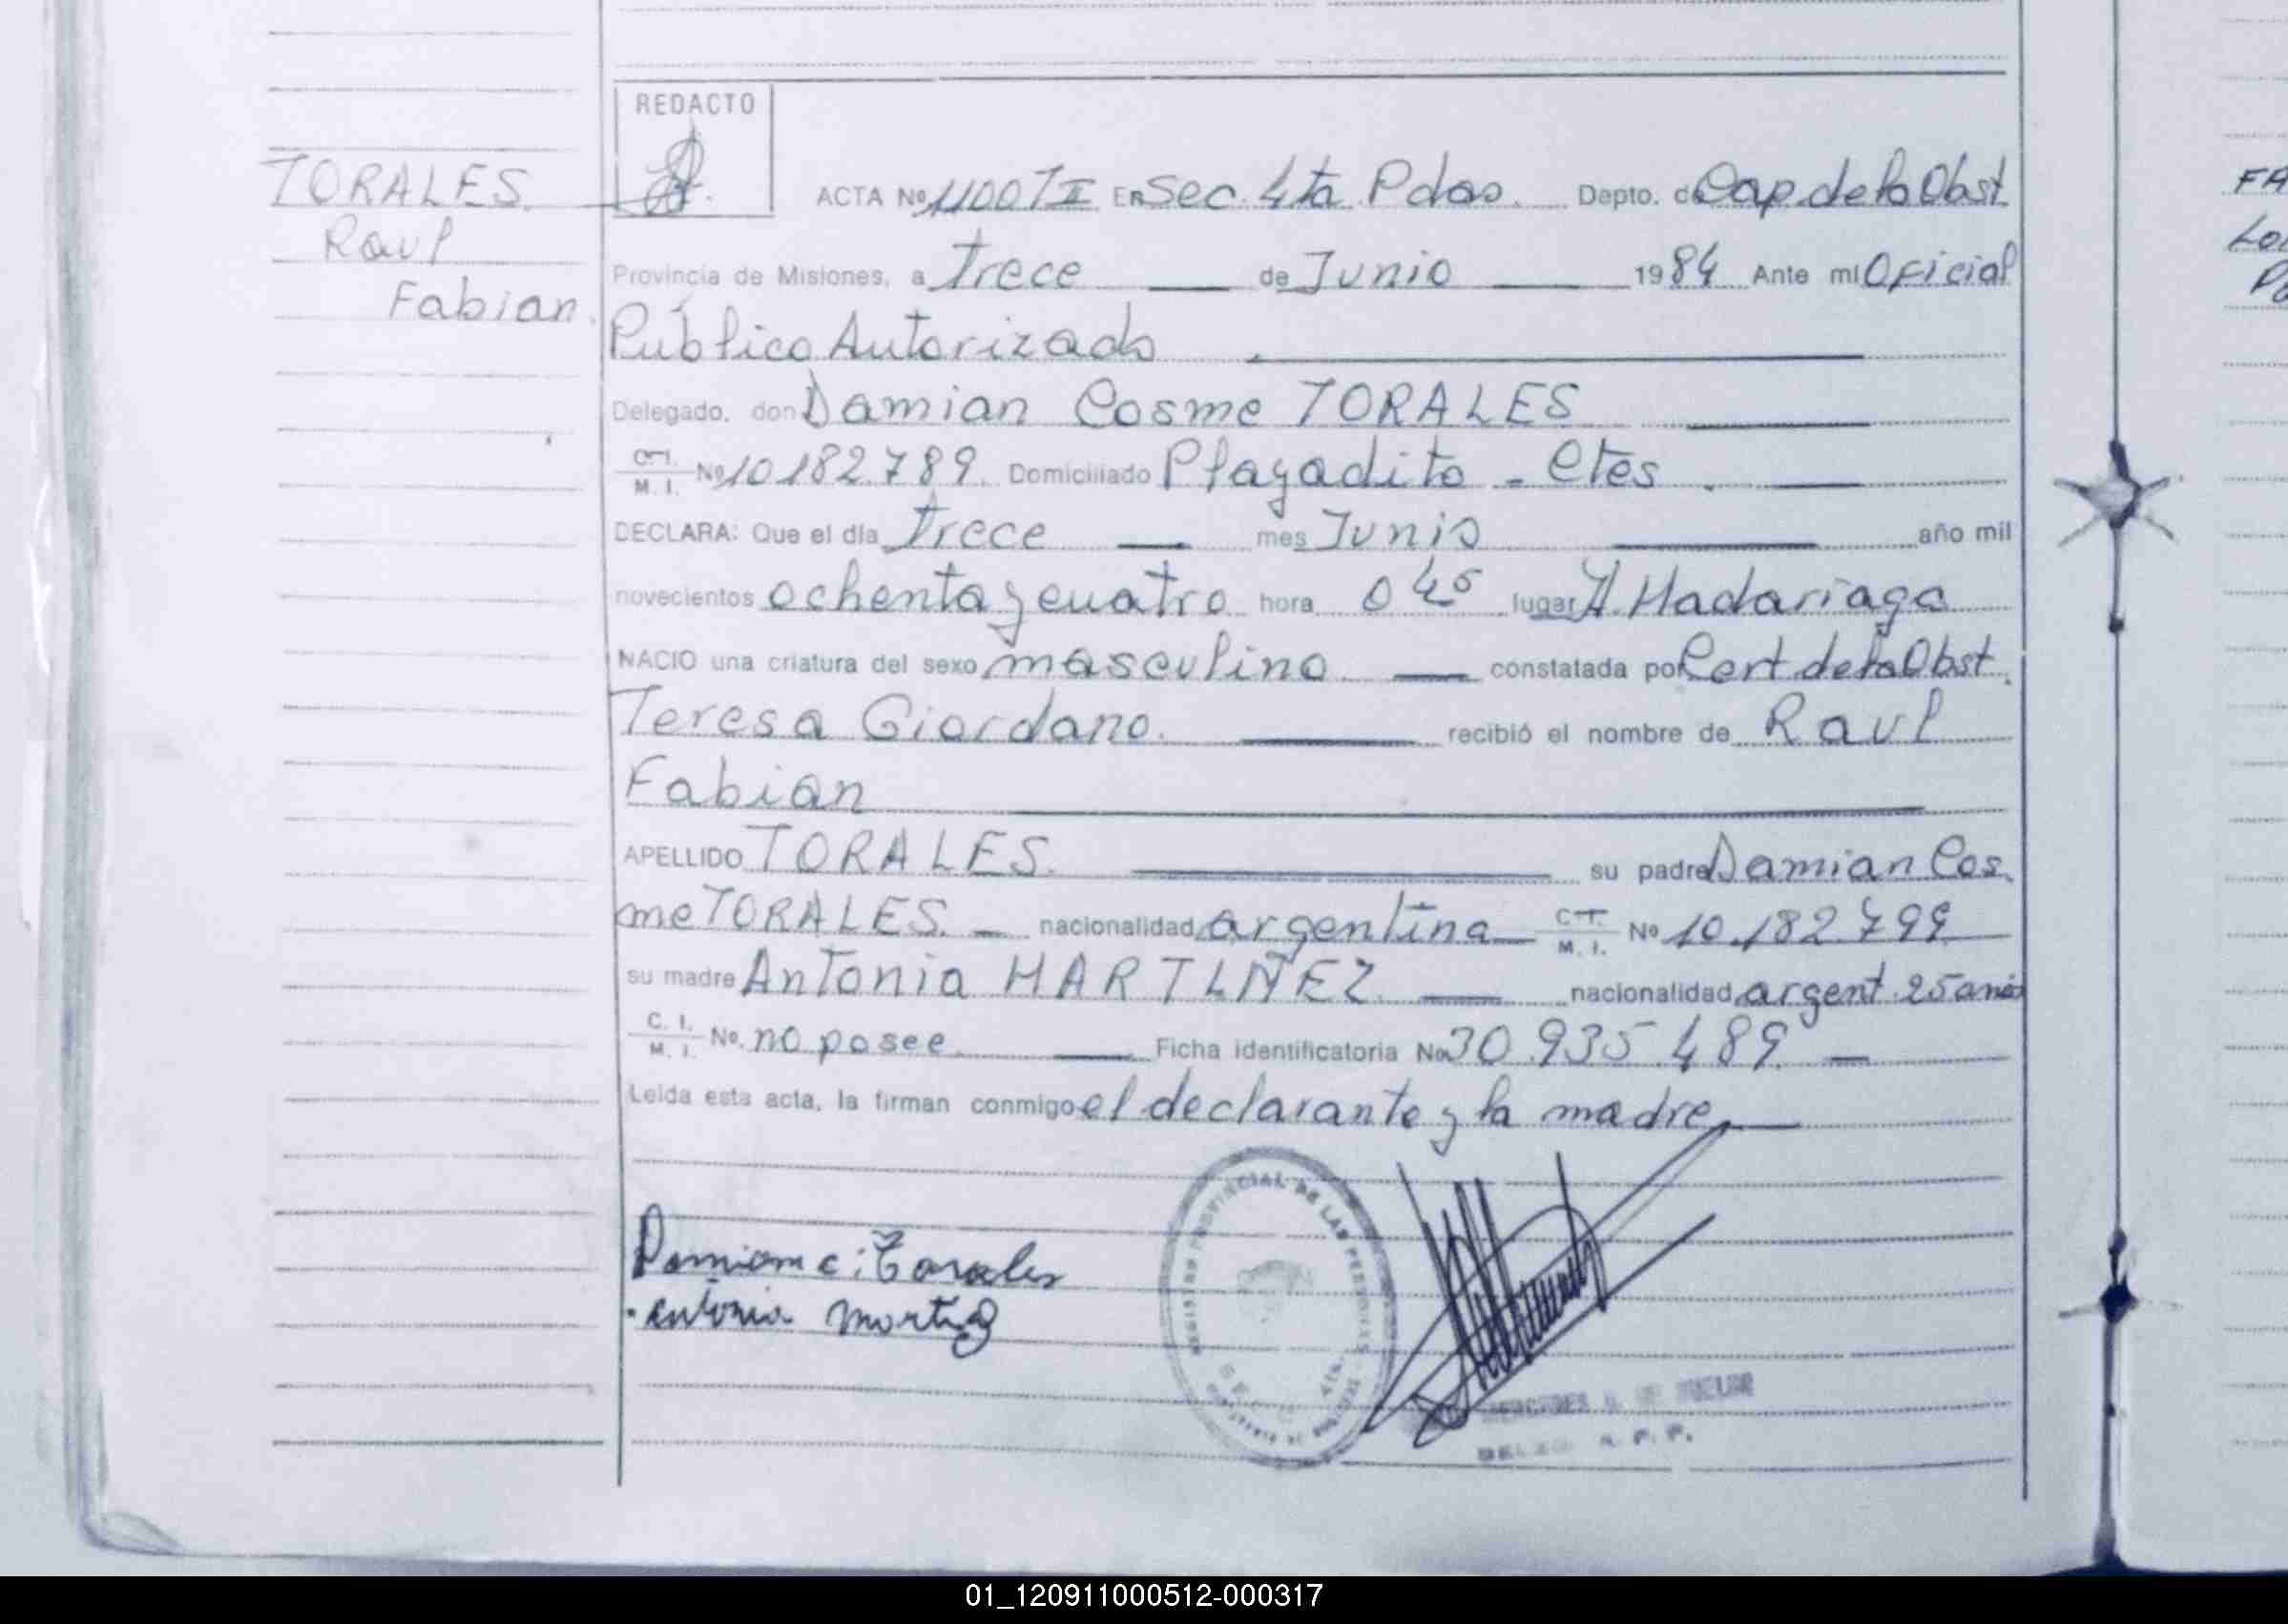 REDACTO
TORALES
Raul
Fabian.
ACTA Nº 1100 T II En Sec. 4ta Pdas. Depto. de Cap. de la Obst.
Provincia de Misiones, a trece de Junio 1984 Ante mí Oficial
Público Autorizado
Delegado, don Damian Cosme TORALES
C. I. M. I. Nº 10.182.789. Domiciliado Playadito - Ctes.
DECLARA: Que el día trece mes Junio año mil
novecientos ochenta y cuatro hora 0 45 lugar H. Madariaga
NACIO una criatura del sexo masculino constatada por Cert de la Obst.
Teresa Giordano. recibió el nombre de Raul
Fabian
APELLIDO TORALES. su padre Damian Cos
me TORALES. nacionalidad argentina C. I. M. I. Nº 10.182.799
su madre Antonia MARTIÑEZ nacionalidad argent. 25 años
C. I. M. I. No. no posee. Ficha identificatoria No 30.935.489
Leída esta acta, la firman conmigo el declarante y la madre
Damian c. Torales
Antonia
REGISTRO PROVINCIAL DE LAS PERSONAS
FA
01_120911000512-000317